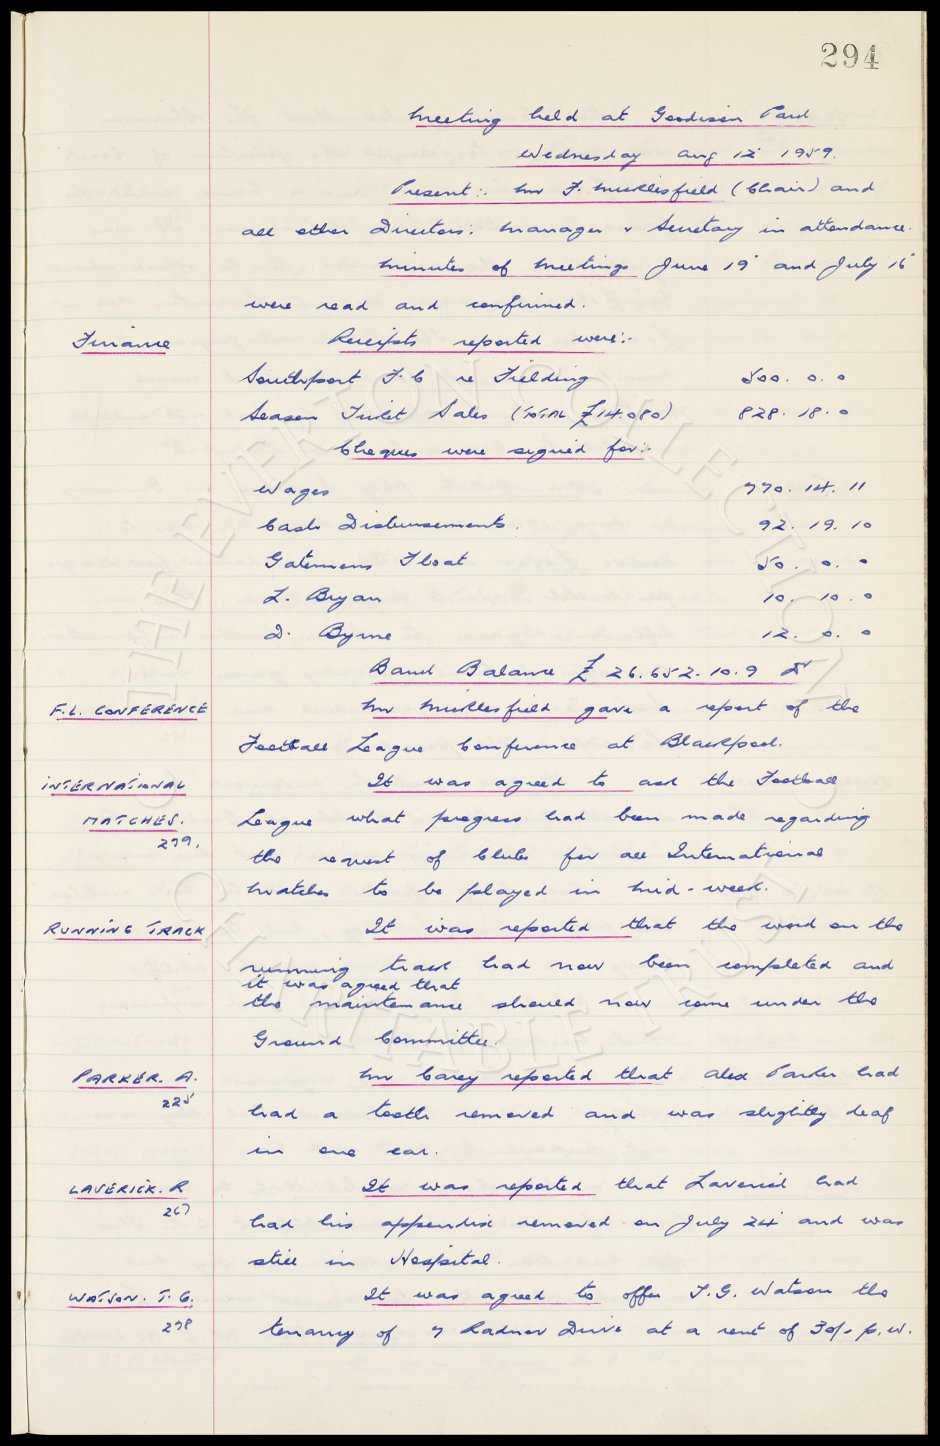 294
Meeting held at Goodison Park
Wednesday Aug 12" 1959.
Present:- Mr F. Micklesfield (Chair) and
all other Directors: Manager & Secretary in attendance.
Minutes of Meetings June 19" and July 15"
were read and confirmed.
Finance Receipts reported were:-
Southport F.C re Fielding 500. 0. 0
Season Ticket Sales (TOTAL £14.080) 828. 18. 0
Cheques were signed for:-
Wages 770. 14. 11
Cash Disbursements. 92. 19. 10
Gatemens Float 50. 0. 0
L. Bryan 10. 10. 0
D. Byrne 12. 0. 0
Bank Balance £26.652. 10. 9
F.L. CONFERENCE Mr Micklesfield gave a report of the
Football League Conference at Blackpool.
INTERNATIONAL It was agreed to ask the Football
MATCHES. League what progress had been made regarding
279. the request of Clubs for all International
Matches to be played in Mid-week.
RUNNING TRACK It was reported that the work on the
running track had now been completed and
it was agreed that
the maintenance should now come under the
Ground Committee.
PARKER. A. Mr Carey reported that Alex Parker had
225 had a tooth removed and was slightly deaf
in one ear.
LAVERICK. R It was reported that Laverick had
267 had his appendix removed on July 24" and was
still in Hospital.
WATSON. T. G. It was agreed to offer T.G. Watson the
278 tenancy of 7 Radnor Drive at a rent of 30/- p.w.
THE EVERTON COLLECTION
CHARITABLE TRUST